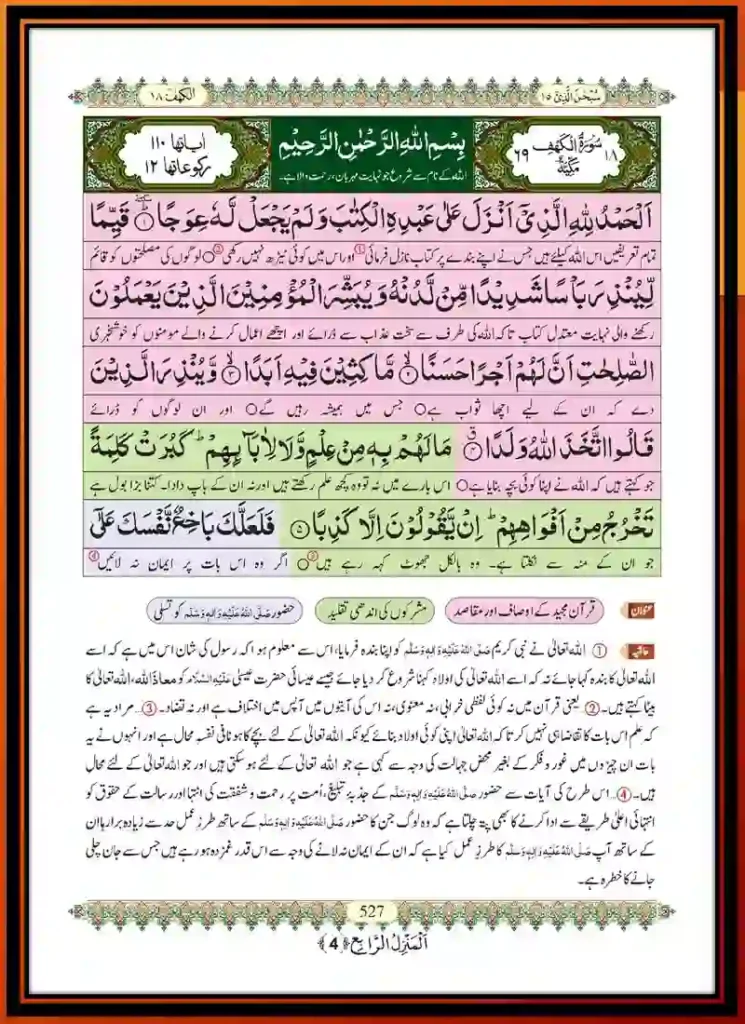 سُبْحٰنَ الَّذِیْٓ ١٥
الکهف ١٨
١٨ سُوْرَةُ الْكَهْفِ ٦٩
مَكِّيَّةٌ
بِسْمِ اللهِ الرَّحْمٰنِ الرَّحِيْمِ
اللہ کے نام سے شروع جو نہایت مہربان، رحمت والا ہے۔
اٰیاتها ١١٠
رکوعاتها ١٢
اَلْحَمْدُ لِلّٰهِ الَّذِیْۤ اَنْزَلَ عَلٰى عَبْدِهِ الْكِتٰبَ وَ لَمْ یَجْعَلْ لَّهٗ عِوَجًا ؕٚ﴿۱﴾ قَیِّمًا
تمام تعریفیں اس اللہ کیلئے ہیں جس نے اپنے بندے پر کتاب نازل فرمائی ① اور اس میں کوئی ٹیڑھ نہیں رکھی ② ○ لوگوں کی مصلحتوں کو قائم
لِّیُنْذِرَ بَاْسًا شَدِیْدًا مِّنْ لَّدُنْهُ وَ یُبَشِّرَ الْمُؤْمِنِیْنَ الَّذِیْنَ یَعْمَلُوْنَ
رکھنے والی نہایت معتدل کتاب تاکہ اللہ کی طرف سے سخت عذاب سے ڈرائے اور اچھے اعمال کرنے والے مومنوں کو خوشخبری
الصّٰلِحٰتِ اَنَّ لَهُمْ اَجْرًا حَسَنًا ۙ﴿۲﴾ مَّاكِثِیْنَ فِیْهِ اَبَدًا ۙ﴿۳﴾ وَّ یُنْذِرَ الَّذِیْنَ
دے کہ ان کے لیے اچھا ثواب ہے ○ جس میں ہمیشہ رہیں گے ○ اور ان لوگوں کو ڈرائے
قَالُوا اتَّخَذَ اللّٰهُ وَلَدًا ۗ﴿۴﴾ مَا لَهُمْ بِهٖ مِنْ عِلْمٍ وَّ لَا لِاٰبَآىِٕهِمْ ؕ كَبُرَتْ كَلِمَةً
جو کہتے ہیں کہ اللہ نے اپنا کوئی بچہ بنایا ہے ○ اس بارے میں نہ تو وہ کچھ علم رکھتے ہیں اور نہ ان کے باپ دادا۔ کتنا بڑا بول ہے
تَخْرُجُ مِنْ اَفْوَاهِهِمْ ؕ اِنْ یَّقُوْلُوْنَ اِلَّا كَذِبًا ﴿۵﴾ فَلَعَلَّكَ بَاخِعٌ نَّفْسَكَ عَلٰۤى
جو ان کے منہ سے نکلتا ہے۔ وہ بالکل جھوٹ کہہ رہے ہیں ③ ○ اگر وہ اس بات پر ایمان نہ لائیں ④
عنوان
قرآن مجید کے اوصاف اور مقاصد
مشرکوں کی اندھی تقلید
حضور صَلَّى اللهُ عَلَيْهِ وَاٰلِهٖ وَسَلَّم کو تسلی
حاشیہ ① اللہ تعالیٰ نے نبی کریم صَلَّى اللهُ عَلَيْهِ وَاٰلِهٖ وَسَلَّم کو اپنا بندہ فرمایا، اس سے معلوم ہوا کہ رسول کی شان اس میں ہے کہ اسے
اللہ تعالیٰ کا بندہ کہا جائے نہ کہ اسے اللہ تعالیٰ کی اولاد کہنا شروع کر دیا جائے جیسے عیسائی حضرت عیسیٰ عَلَيْهِ السَّلَام کو معاذ اللہ، اللہ تعالیٰ کا
بیٹا کہتے ہیں۔ ② یعنی قرآن میں نہ کوئی لفظی خرابی، نہ معنوی، نہ اس کی آیتوں میں آپس میں اختلاف ہے اور نہ تضاد۔ ③۔ مراد یہ ہے
کہ علم اس بات کا تقاضا ہی نہیں کرتا کہ اللہ تعالیٰ اپنی کوئی اولاد بنائے کیونکہ اللہ تعالیٰ کے لئے بچے کا ہونا فی نفسہٖ محال ہے اور انہوں نے یہ
بات ان چیزوں میں غور و فکر کے بغیر محض جہالت کی وجہ سے کہی ہے جو اللہ تعالیٰ کے لئے ہو سکتی ہیں اور جو اللہ تعالیٰ کے لئے محال
ہیں۔ ④۔ اس طرح کی آیات سے حضور صَلَّى اللهُ عَلَيْهِ وَاٰلِهٖ وَسَلَّم کے جذبۂ تبلیغ، اُمت پر رحمت و شفقت کی انتہا اور رسالت کے حقوق کو
انتہائی اعلیٰ طریقے سے ادا کرنے کا بھی پتہ چلتا ہے کہ وہ لوگ جن کا حضور صَلَّى اللهُ عَلَيْهِ وَاٰلِهٖ وَسَلَّم کے ساتھ طرزِ عمل حد سے زیادہ برا رہا ان
کے ساتھ آپ صَلَّى اللهُ عَلَيْهِ وَاٰلِهٖ وَسَلَّم کا طرزِ عمل کیا ہے کہ ان کے ایمان نہ لانے کی وجہ سے اس قدر غمزدہ ہو رہے ہیں جس سے جان چلی
جانے کا خطرہ ہے۔
527
اَلْمَنْزِلُ الرَّابِعُ ﴿4﴾